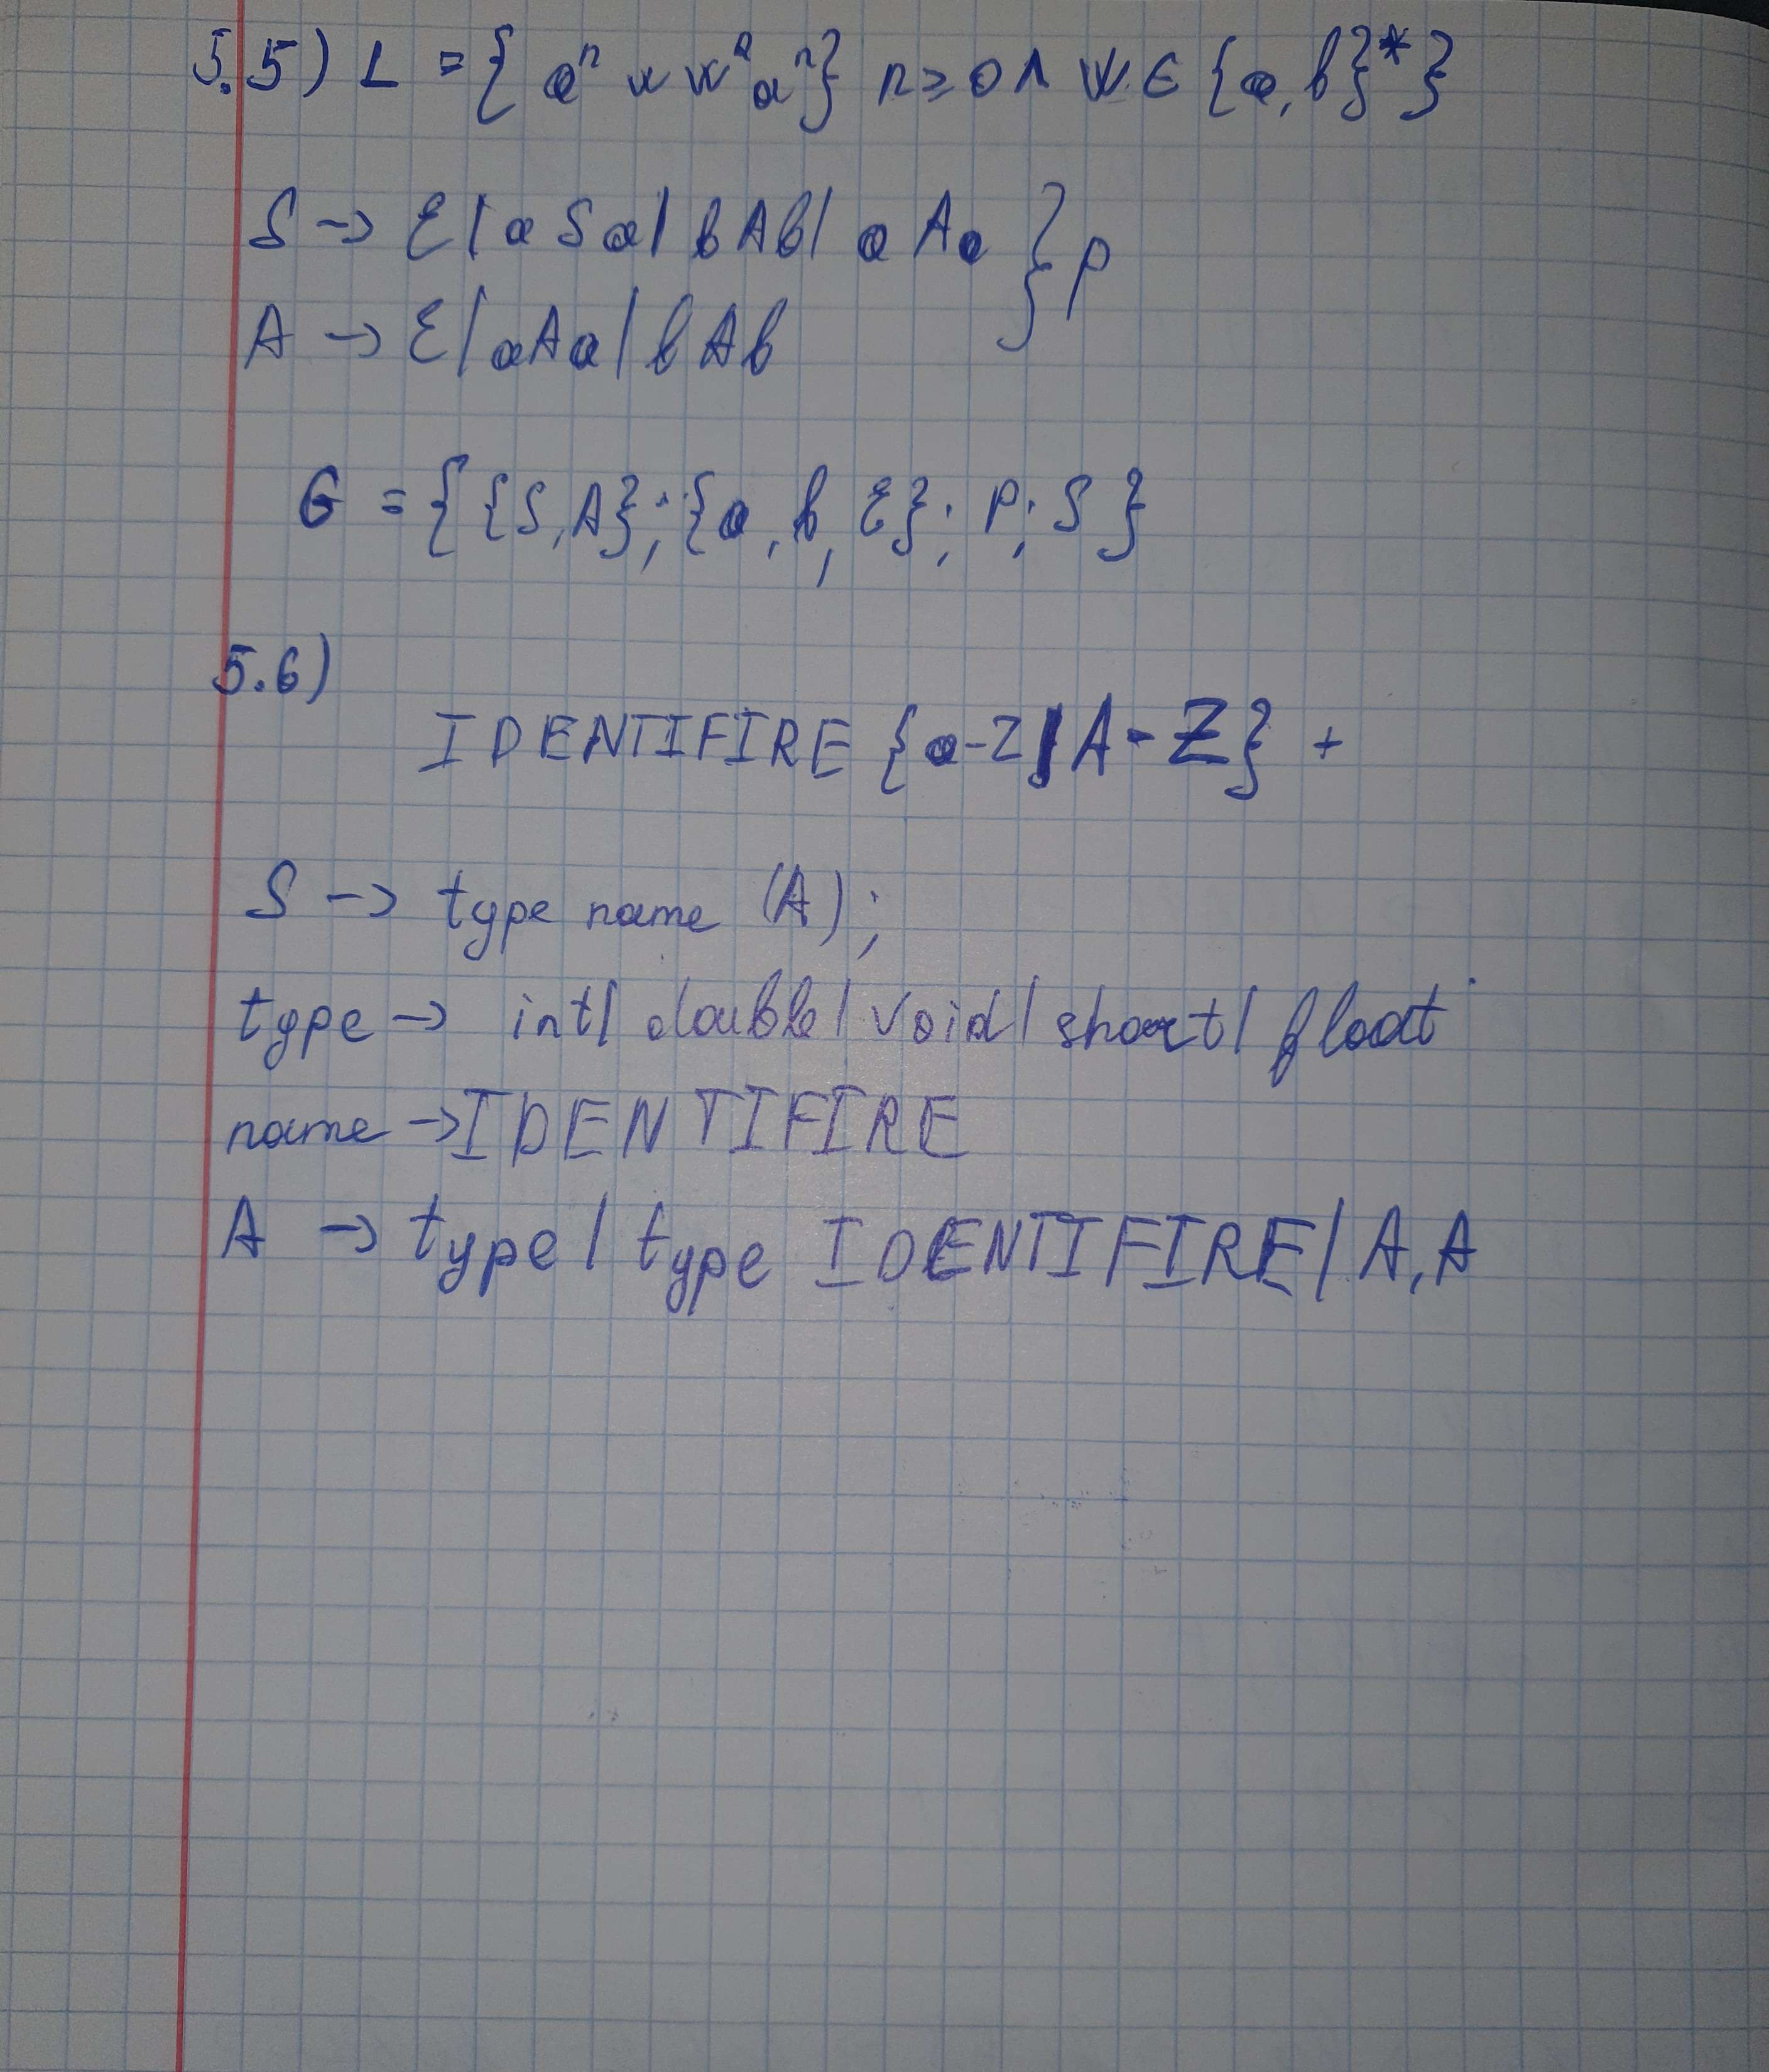 5.5) L = { aⁿ w wᴿ aⁿ} n ≥ 0 ∧ w ∈ {a, b}* }
S → ε | a S a | b A b | a A a } P
A → ε | a A a | b A b
G = { {S, A}; {a, b, ε}; P; S }
5.6)
IDENTIFIRE {a-z | A-Z} +
S → type name (A);
type → int | double | void | short | float
name → IDENTIFIRE
A → type | type IDENTIFIRE | A, A